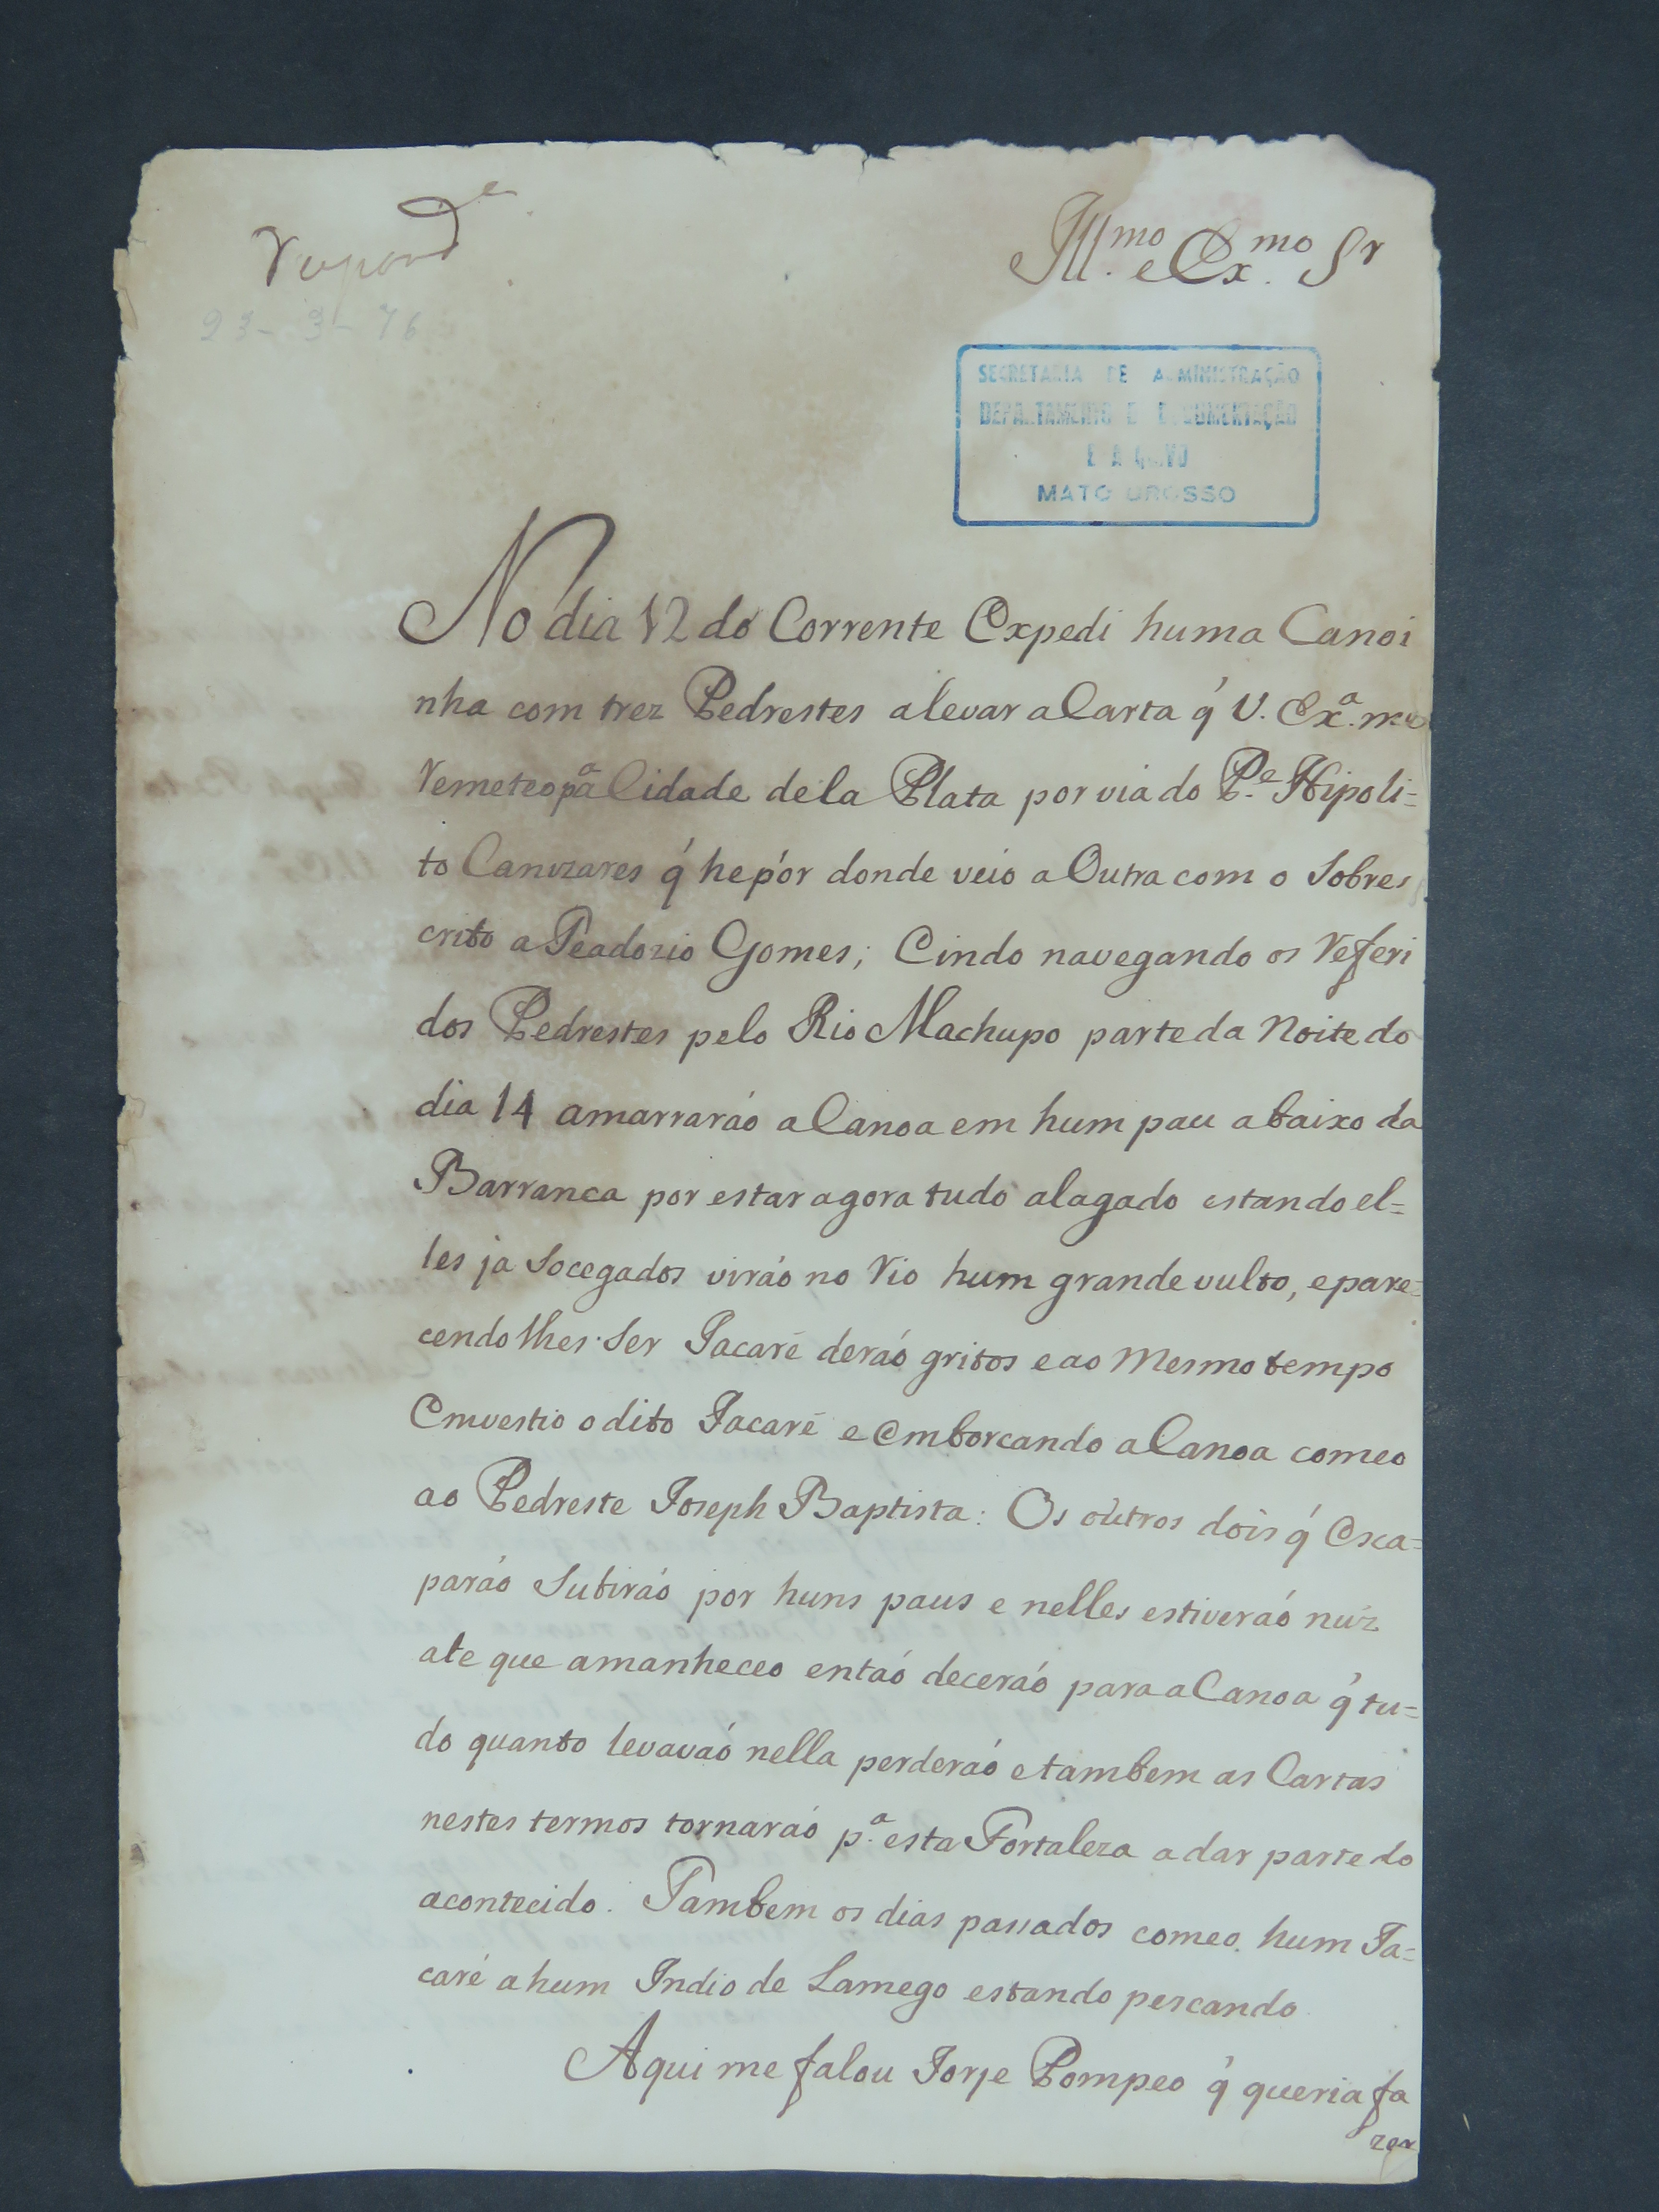 Respond.e
Ill.mo e Ex.mo Sr
23-3-76
SECRETARIA DE ADMINISTRAÇÃO
DEPARTAMENTO DE DOCUMENTAÇÃO
E ARQUIVO
MATO GROSSO
No dia 12 do Corrente Expedi huma Canoi
nha com trez Pedrestes a levar a Carta q̃ V. Ex.a me
remeteo p.a a Cidade de la Plata por via do P.e Hipoli=
to Canizares q̃ he pór donde veio a Outra com o Sobres
crito a Teadozio Gomes; E indo navegando os referi
dos Pedrestes pelo Rio Machupo parte da Noite do
dia 14 amarraráo a Canoa em hum pau abaixo da
Barranca por estar agora tudo alagado estando el=
les ja Socegados viráo no rio hum grande vulto, e pare=
cendo lhes Ser Jacaré deráo gritos e ao Mesmo tempo
Emvestio o dito Jacaré e Emborcando a Canoa comeo
ao Pedreste Joseph Baptista: Os outros dois q̃ Esca=
paráo Subiráo por huns paus e nelles estiveraó nuz
ate que amanheceo entaó deceráo para a Canoa q̃ tu=
do quanto levavaó nella perderaó e tambem as Cartas
nestes termos tornaráo p.a esta Fortaleza a dar parte do
acontecido. Tambem os dias passados comeo hum Ja=
caré a hum Indio de Lamego estando pescando
Aqui me falou Jorje Pompeo q̃ queria fa
zer